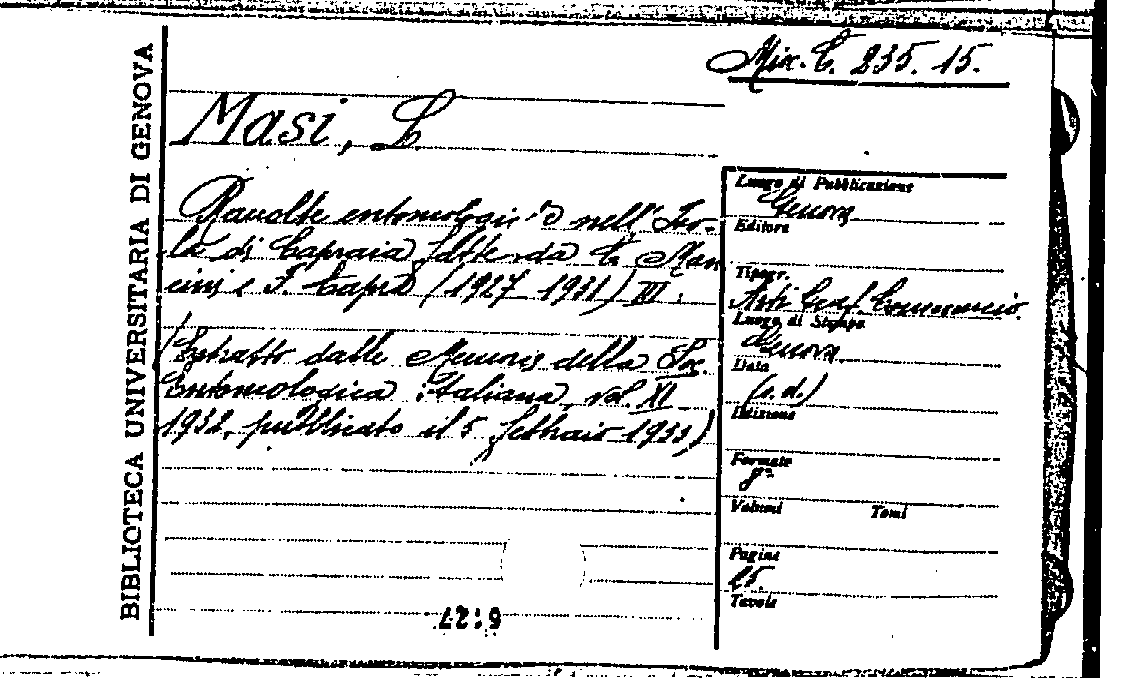 Misc. C. 235. 15.
BIBLIOTECA UNIVERSITARIA DI GENOVA
Masi, L
Raccolte entomologiche nell' Iso-
la di Capraia fatte da C. Man
cini e F. Capra (1927-1931) III.
(Estratto dalle Memorie della Soc.
Entomologica italiana, vol. XI
1932, pubblicato il 5 febbraio 1933)
Luogo di Pubblicazione
Genova
Editore
Tipogr.
Arti Graf. Commercio
Luogo di Stampa
Genova
Data
(s. d.)
Edizione
Formato
8°
Volumi Tomi
Pagine
25.
Tavole